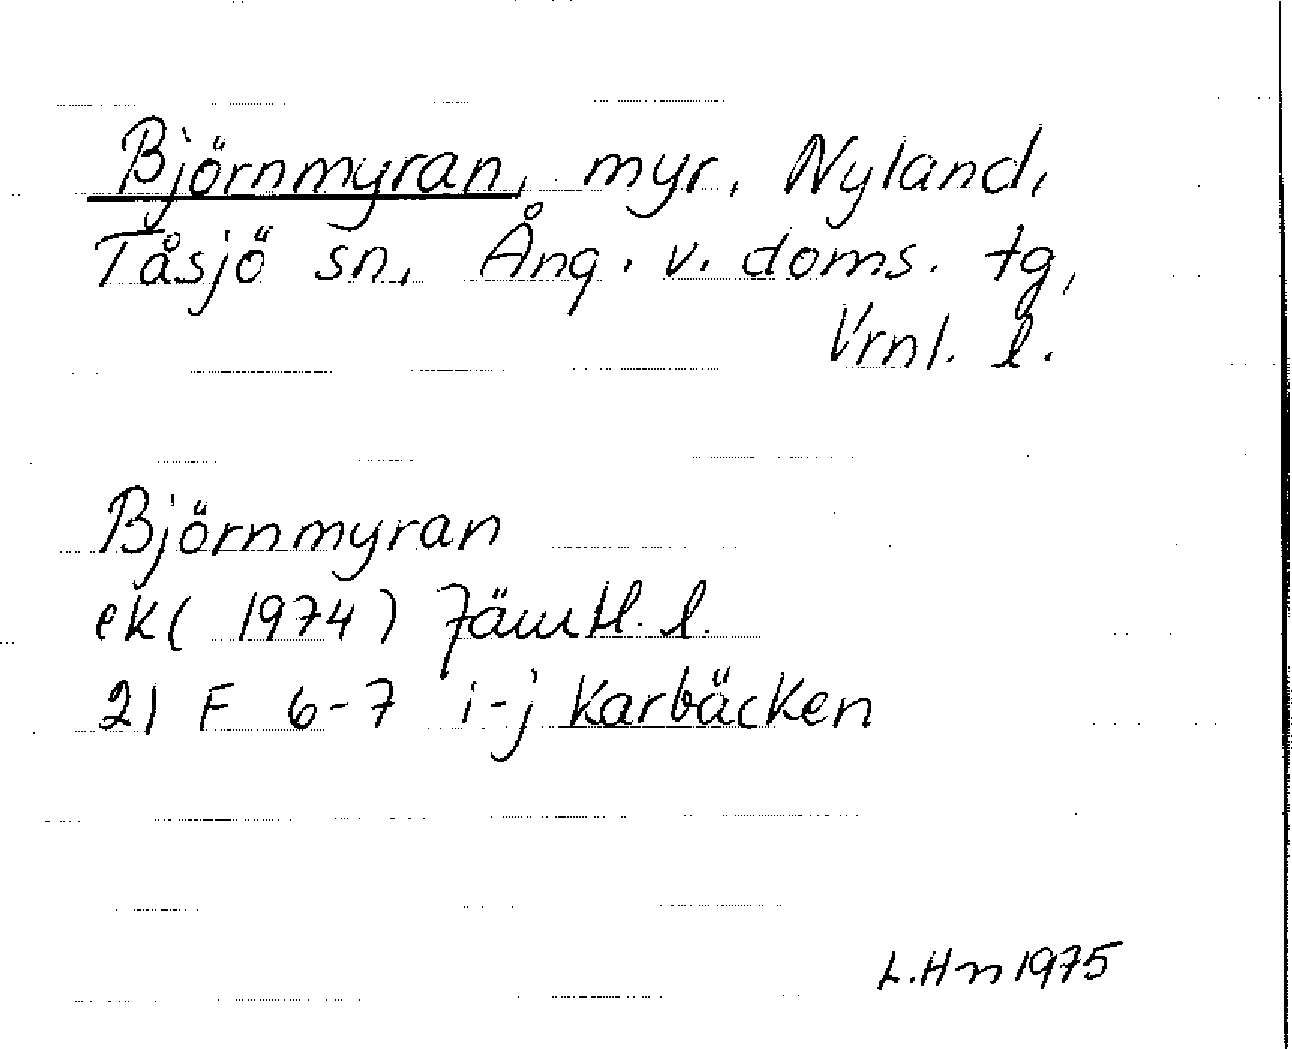 Björnmyran, myr, Nyland,
Tåsjö sn, Ång. v. doms. tg,
Vrnl. l.
Björnmyran
ek( 1974) Jämtl. l.
21 F 6-7 i-j Karbäcken
L.Hn 1975